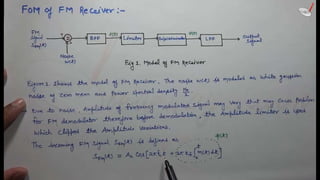 FOM of FM Receiver:-
FM Signal SFM(t)
BPF
Limiter
Discriminator
LPF
Output Signal
Noise w(t)
Fig 1. Model of FM Receiver
Figure 1 shows the model of FM Receiver. The noise w(t) is modeled as white gaussian
noise of zero mean and Power spectral density N₀/2
Due to noise, Amplitude of frequency modulated signal may vary that may cause problem
for FM demodulator therefore before demodulation, the Amplitude Limiter is used
which clipped the Amplitude variations.
The incoming FM Signal SFM(t) is defined as
φ(t)
SFM(t) = Ac Cos[2πfct + 2πkf ∫₀ᵗ m(t)dt]